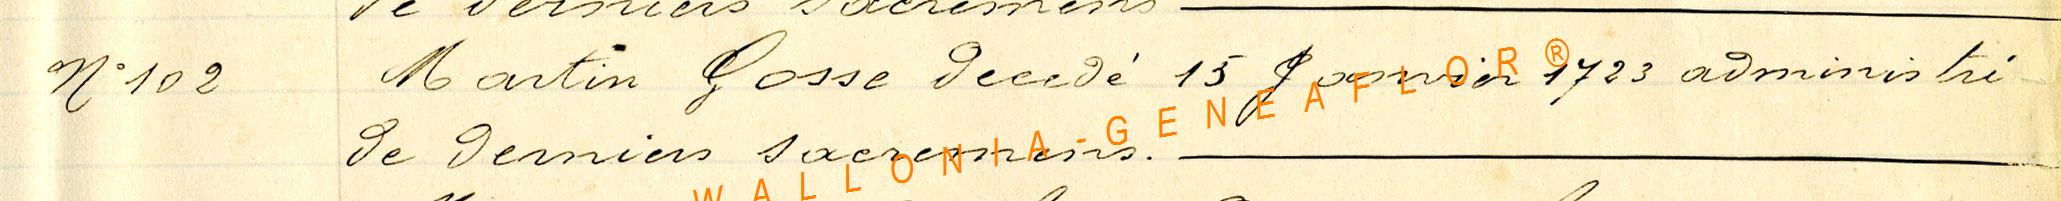 de derniers sacremens
N° 102 Martin Gosse decedé 15 Janvier 1723 administré
de derniers sacremens.
WALLONIA-GENEAFLOR®